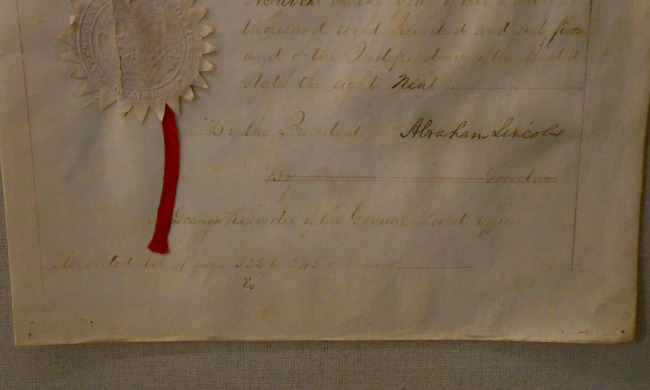 March in the year of our Lord one
thousand eight hundred and sixty five
and of the Independence of the United
States the eighty Ninth
By the President Abraham Lincoln
By Secretary
Recorder of the General Land Office
Recorded Vol 4 pages 336 to 343 inclusive